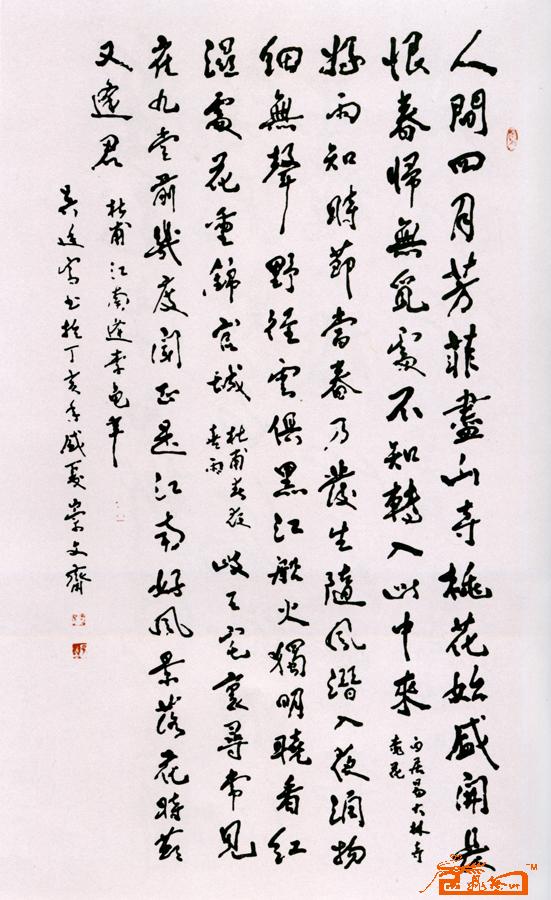 人間四月芳菲盡山寺桃花始盛開長
恨春歸無覓處不知轉入此中來
白居易大林寺
桃花
好雨知時節當春乃發生隨風潛入夜潤物
細無聲野徑雲俱黑江船火獨明曉看紅
濕處花重錦官城
杜甫春夜
喜雨
岐王宅裏尋常見
崔九堂前幾度聞正是江南好風景落花時節
又逢君
杜甫江南逢李龜年
书於丁亥年盛夏崇文齋